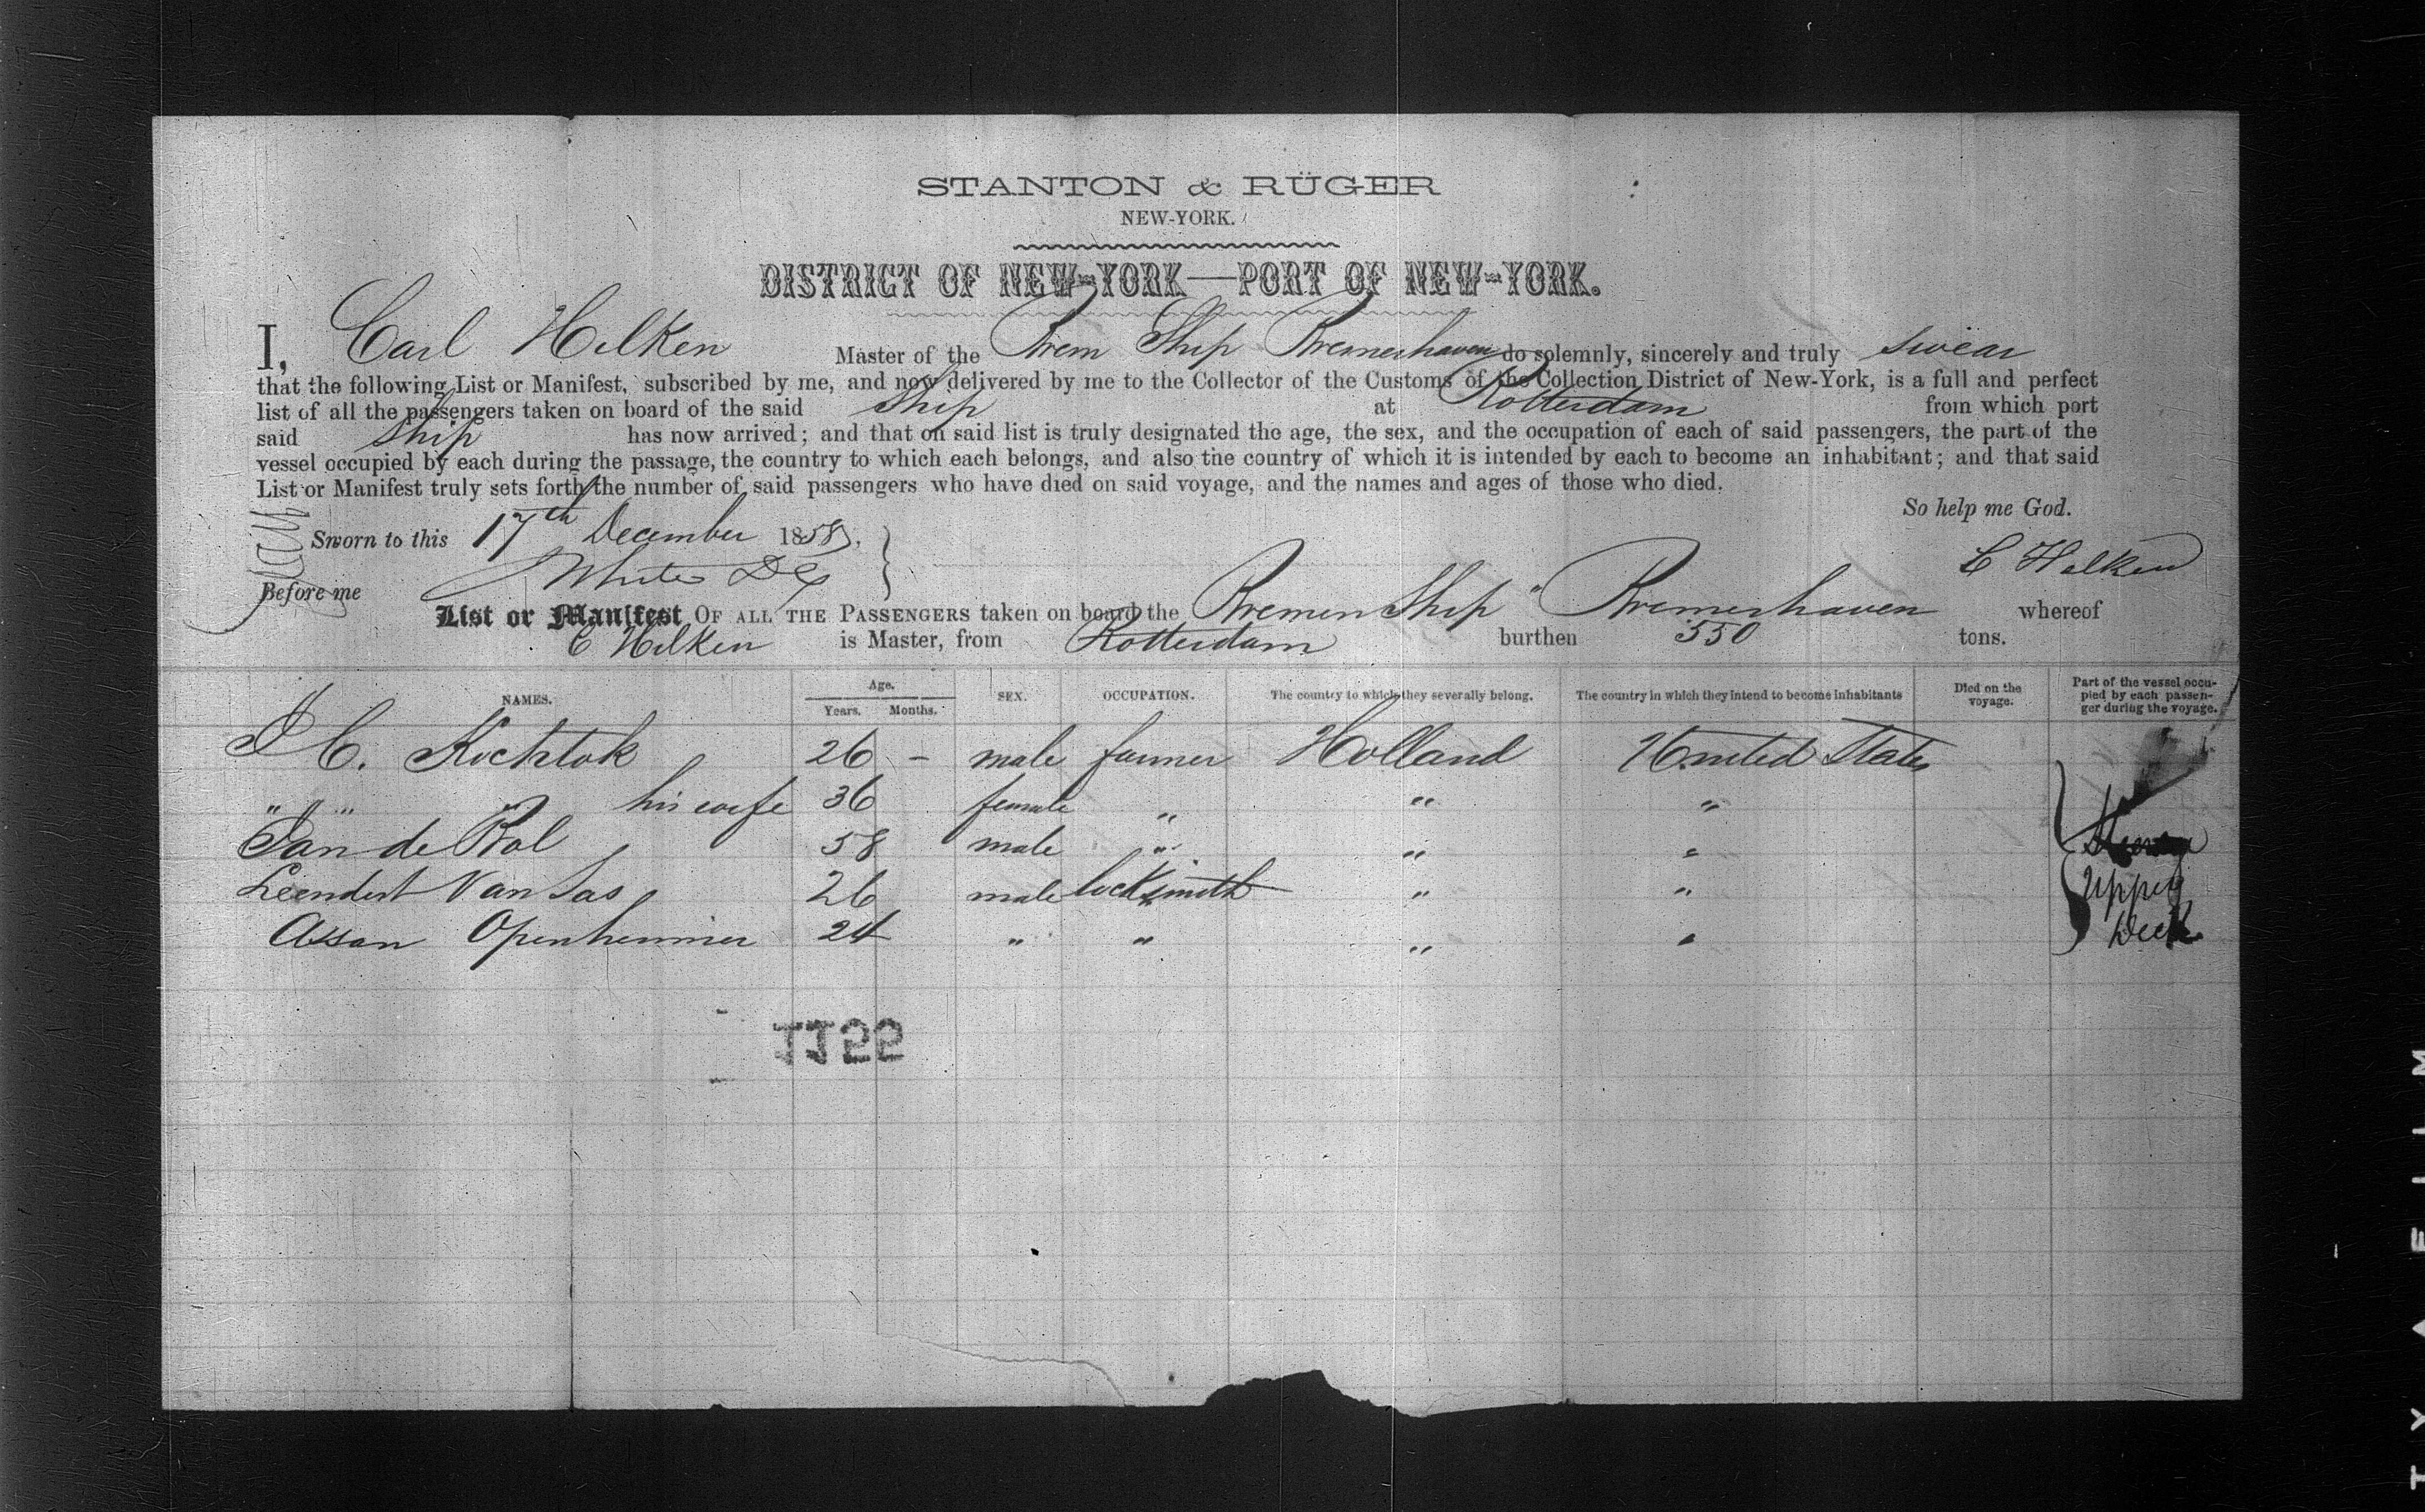 STANTON & RÜGER
NEW-YORK.
DISTRICT OF NEW-YORK—PORT OF NEW-YORK.
I, Carl Hilken Master of the Brem Ship Bremerhaven do solemnly, sincerely and truly swear
that the following List or Manifest, subscribed by me, and now delivered by me to the Collector of the Customs of the Collection District of New-York, is a full and perfect
list of all the passengers taken on board of the said Ship at Rotterdam from which port
said Ship has now arrived; and that on said list is truly designated the age, the sex, and the occupation of each of said passengers, the part of the
vessel occupied by each during the passage, the country to which each belongs, and also the country of which it is intended by each to become an inhabitant; and that said
List or Manifest truly sets forth the number of said passengers who have died on said voyage, and the names and ages of those who died.
So help me God.
Sworn to this 17th December 1858.
C Hilken
Before me White
List or Manifest OF ALL THE PASSENGERS taken on board the Bremen Ship "Bremerhaven whereof
C Hilken is Master, from Rotterdam burthen 550 tons.
NAMES. Age. Years. Months. SEX. OCCUPATION. The country to which they severally belong. The country in which they intend to become inhabitants Died on the voyage. Part of the vessel occupied by each passenger during the voyage.
C. Kochtok 26 - male farmer Holland United States
" " his wife 36 female " " "
Jan de Bol 58 male " " "
Leendert Van Sas 26 male locksmith " "
Assan Openheimer 24 " " " "
Upper
Deck
1155